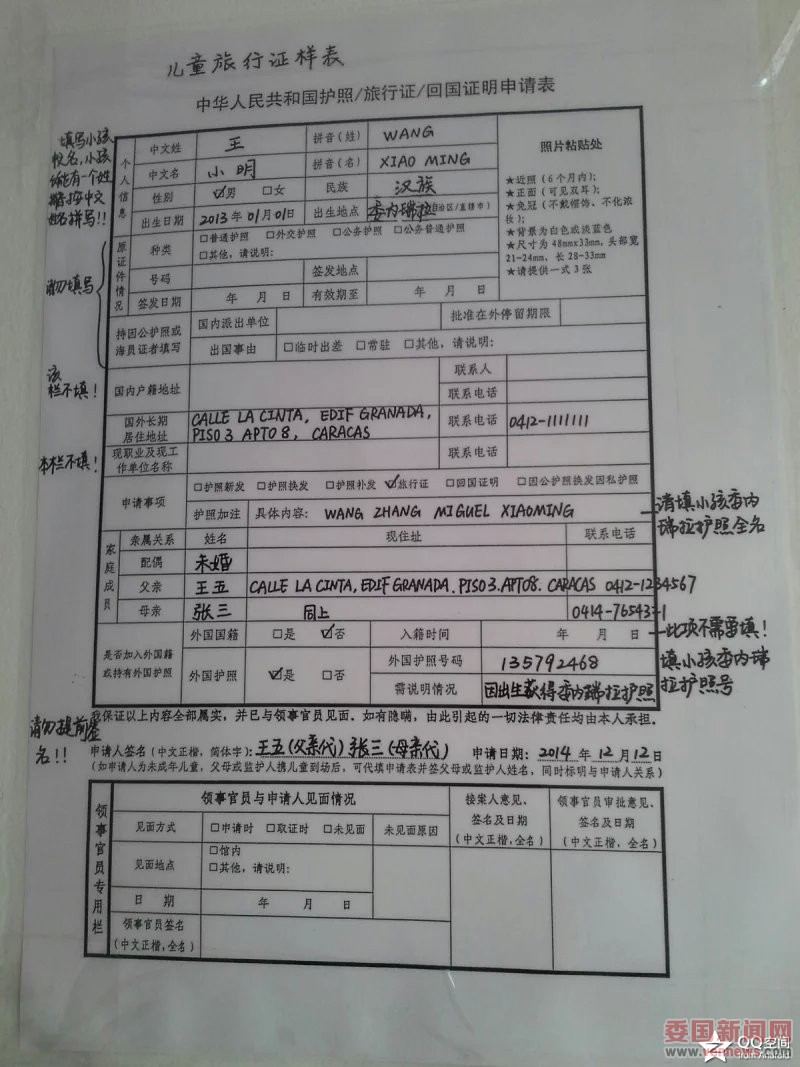 儿童旅行证样表
中华人民共和国护照/旅行证/回国证明申请表
填写小孩
姓名,小孩
只能有一个姓
拼音按中文
姓名拼写!!
个人信息
中文姓 王 拼音(姓) WANG
中文名 小明 拼音(名) XIAO MING
性别 ☑男 □女 民族 汉族
出生日期 2013年01月01日 出生地点 委内瑞拉 自治区/直辖市)
照片粘贴处
★近照(6个月内);
★正面(可见双耳);
★免冠(不戴帽饰、不化浓
妆);
★背景为白色或淡蓝色
★尺寸为48mm×33mm,头部宽
21-24mm、长28-33mm
★请提供一式3张
请勿填写
原证件情况
种类 □普通护照 □外交护照 □公务护照 □公务普通护照
□其他,请说明:
号码 签发地点
签发日期 年 月 日 有效期至 年 月 日
持因公护照或
海员证者填写
国内派出单位 批准在外停留期限
出国事由 □临时出差 □常驻 □其他,请说明:
该
栏不填!
国内户籍地址 联系人
联系电话
国外长期
居住地址
CALLE LA CINTA, EDIF GRANADA,
PISO 3 APTO 8, CARACAS
联系电话 0412-1111111
本栏不填!
现职业及现工
作单位名称
联系电话
申请事项 □护照新发 □护照换发 □护照补发 ☑旅行证 □回国证明 □因公护照换发因私护照
护照加注 具体内容: WANG ZHANG MIGUEL XIAOMING
请填小孩委内
瑞拉护照全名
家庭成员
亲属关系 姓名 现住址 联系电话
配偶 未婚
父亲 王五 CALLE LA CINTA, EDIF GRANADA. PISO 3. APTO8. CARACAS 0412-1234567
母亲 张三 同上 0414-7654321
是否加入外国籍
或持有外国护照
外国国籍 □是 ☑否 入籍时间 年 月 日
此项不需要填!
外国护照 ☑是 □否 外国护照号码 135792468
填小孩委内瑞
拉护照号
需说明情况 因出生获得委内瑞拉护照
保证以上内容全部属实,并已与领事官员见面。如有隐瞒,由此引起的一切法律责任均由本人承担。
请勿提前签
名!!
申请人签名(中文正楷,简体字):王五(父亲代) 张三(母亲代) 申请日期:2014年12月12日
(如申请人为未成年儿童,父母或监护人携儿童到场后,可代填申请表并签父母或监护人姓名,同时标明与申请人关系)
领事官员专用栏
领事官员与申请人见面情况
接案人意见、
签名及日期
(中文正楷,全名)
领事官员审批意见、
签名及日期
(中文正楷,全名)
见面方式 □申请时 □取证时 □未见面 未见面原因
见面地点 □馆内
□其他,请说明:
日 期 年 月 日
领事官员签名
(中文正楷,全名)
委国新闻网
www.venews.com
QQ空间
from Android